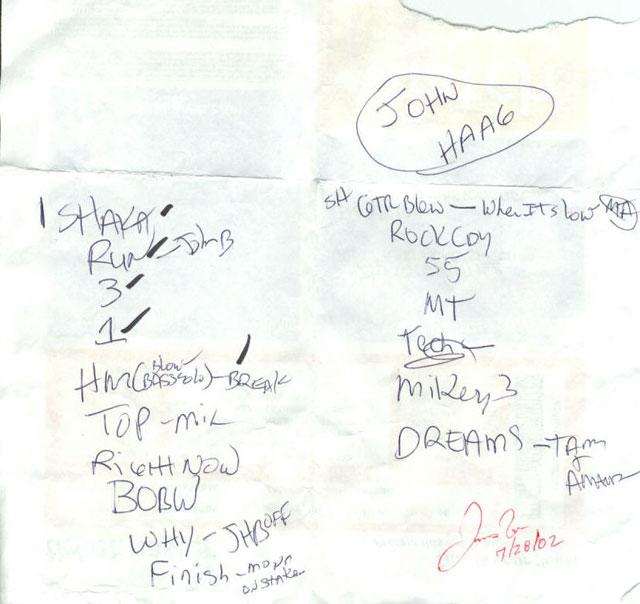 JOHN
HAAG
1 SHAKA
RUN - JhnB
3
1
Hm(BLOW BASSolo) - BREAK
TOP - mik
RigHt NOW
BOBW
WHY - JHBOFF
Finish - monn
on stake
SH GTR Blow - When Its low MA
ROCKCDY
55
MT
Mikey 3
DREAMS - Tam
7/28/02